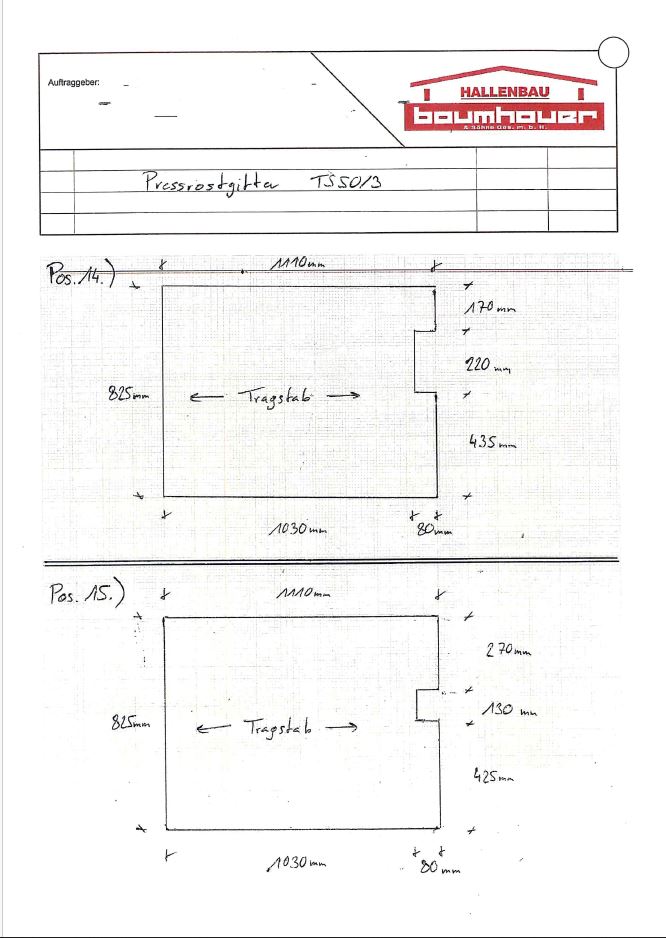 Auftraggeber:
HALLENBAU
baumhauer
& Söhne Ges. m. b. H.
Pressrostgitter TS50/3
Pos. 14.)
1110mm
170mm
220mm
825mm
← Tragstab →
435mm
1030mm
80mm
Pos. 15.)
1110mm
270mm
130mm
825mm
← Tragstab →
425mm
1030mm
80mm